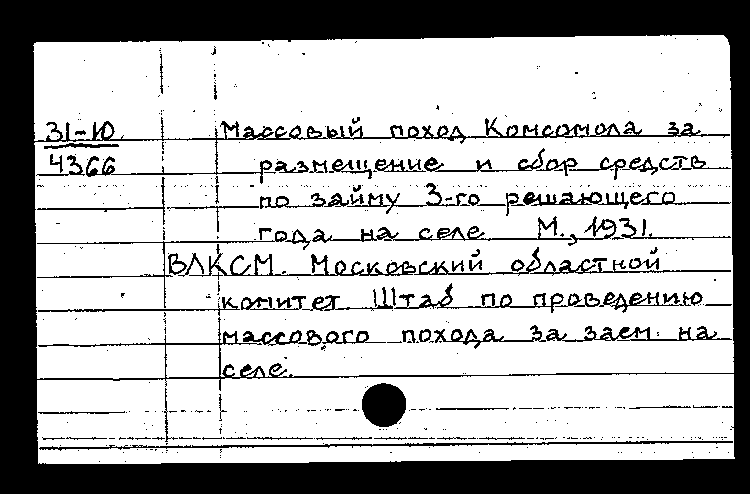 31-Ю
4366
Массовый поход Комсомола за
размещение и сбор средств
по займу 3-го решающего
года на селе М., 1931.
ВЛКСМ. Московский областной
комитет. Штаб по проведению
массового похода за заем на
селе.